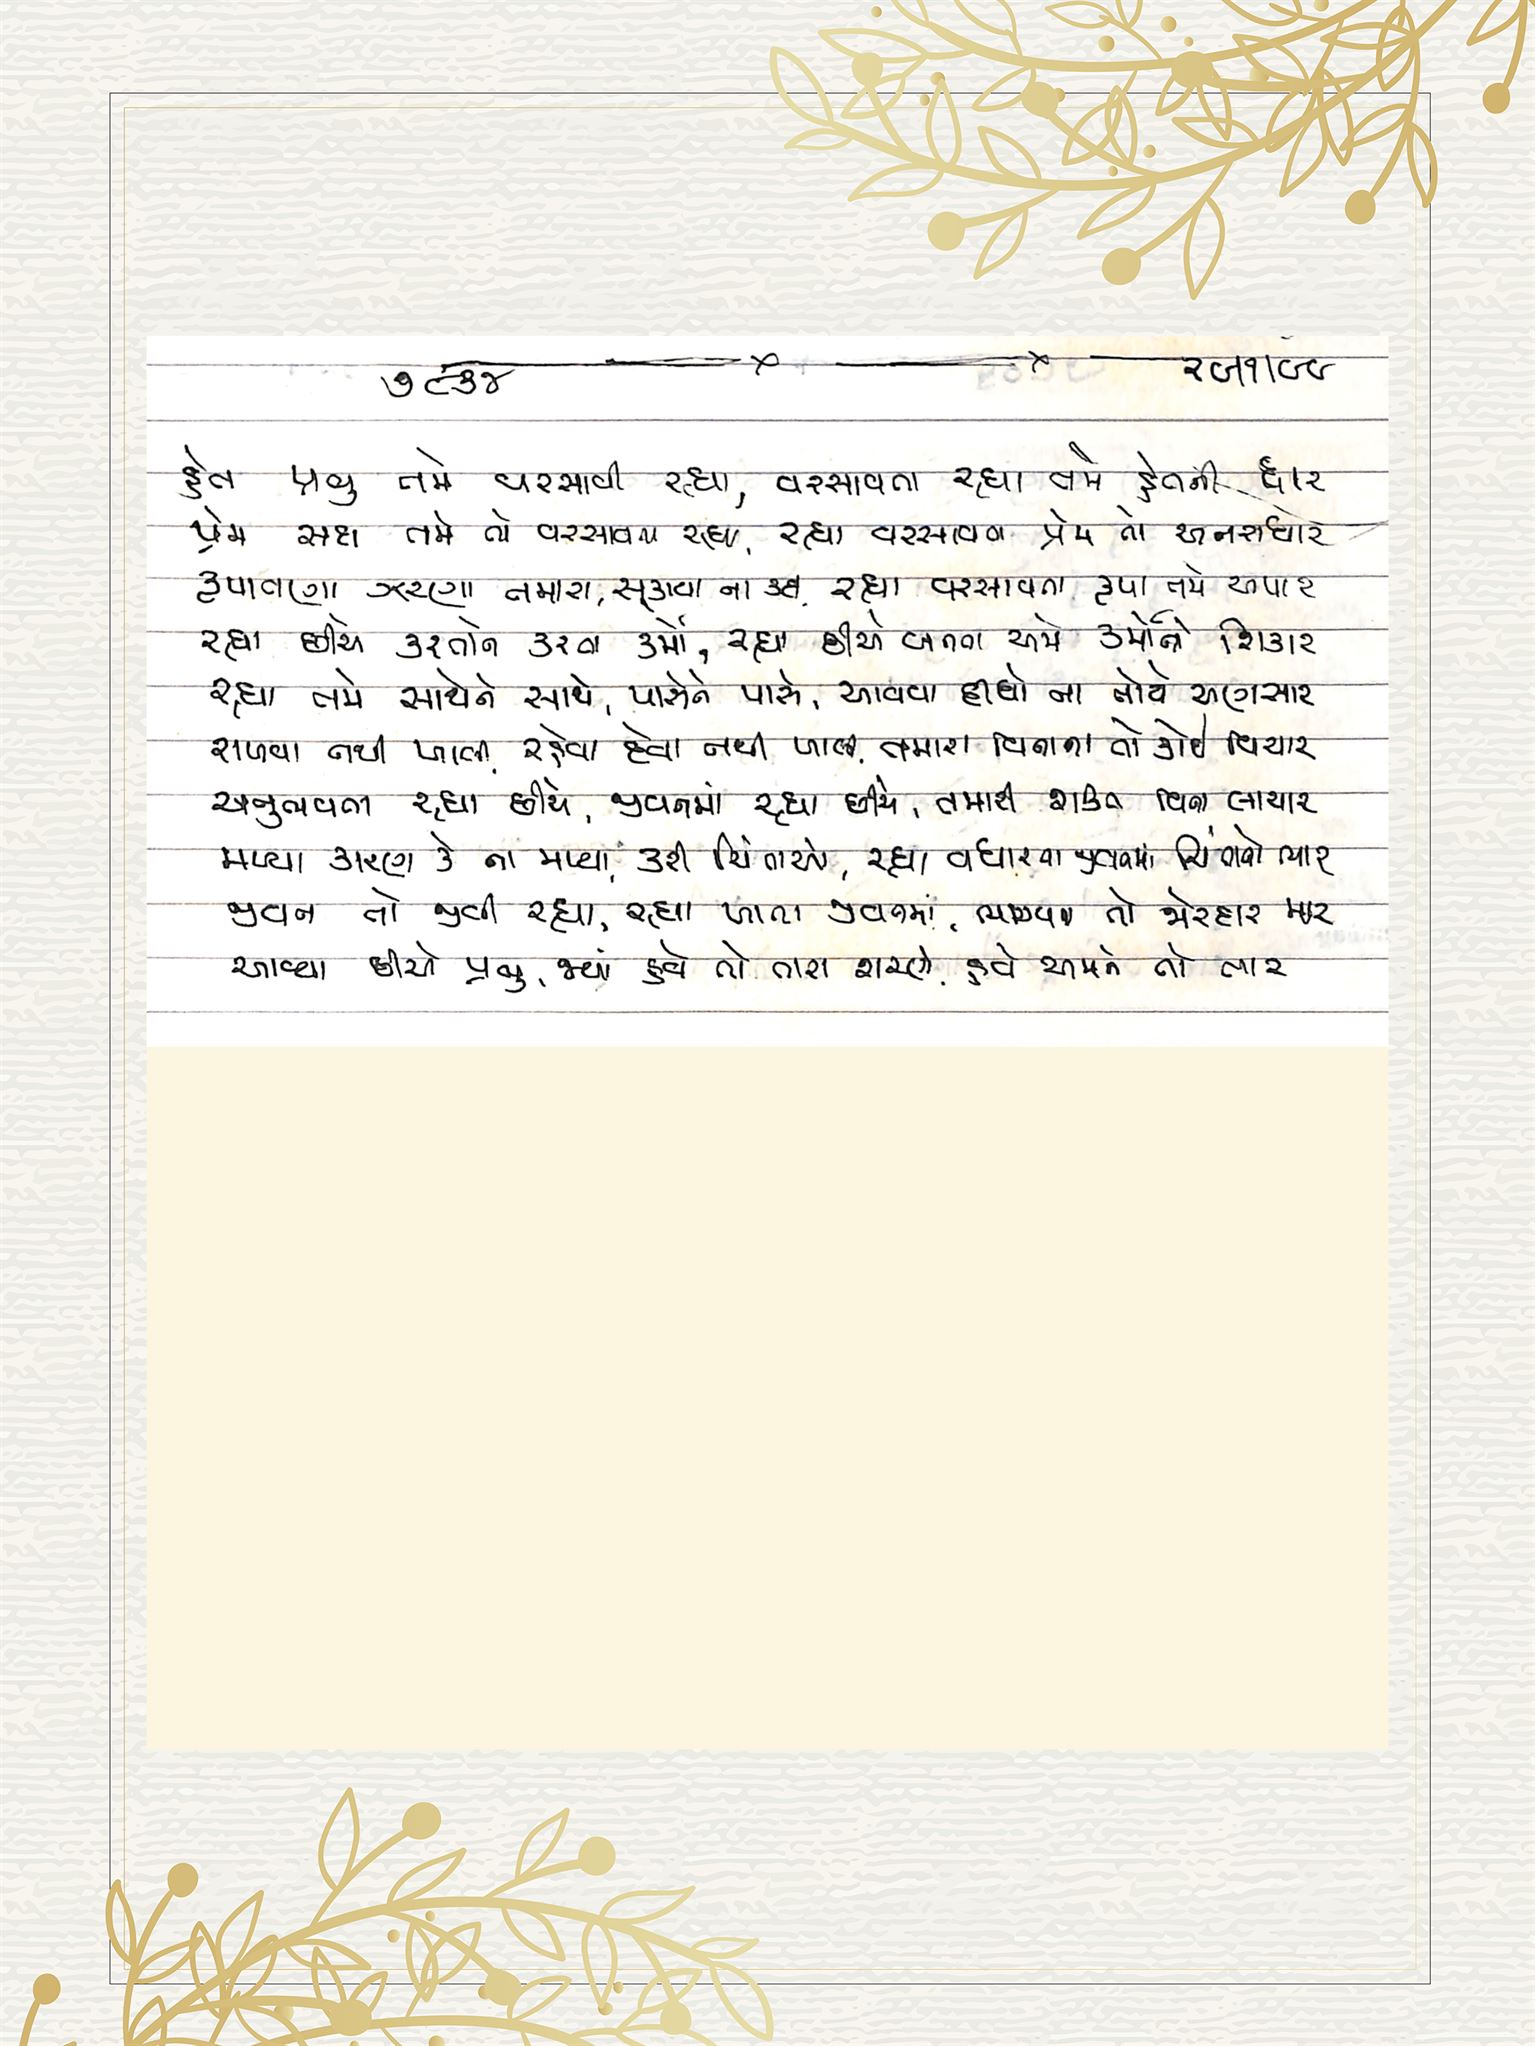 ૭૯૩૪
હેત પ્રભુ તમે વરસાવી રહ્યા, વરસાવતા રહ્યા તમે હેતની ધાર
પ્રેમ સદા તમે તો વરસાવતા રહ્યા, રહ્યા વરસાવતા પ્રેમ તો અનરાધાર
કૃપાતણા ઝરણા તમારા, સૂકાવા ના દીધા, રહ્યા વરસાવતા કૃપા તમે અપાર
રહ્યા છીએ કરતાને કરતા કર્મો, રહ્યા છીએ બનતા અમે કર્મોનો શિકાર
રહ્યા તમે સાથેને સાથે, પાસેને પાસે, આવવા દીધો ના તોયે અણસાર
રાખવા નથી ખાલી, રહેવા દેવા નથી ખાલી, તમારા વિનાના તો કોઈ વિચાર
અનુભવતા રહ્યા છીયે, જીવનમાં રહ્યા છીયે, તમારી શક્તિ વિના લાચાર
મળ્યા કારણ કે ના મળ્યા, કરી ચિંતાઓ, રહ્યા વધારતા જીવનમાં ચિંતાનો ભાર
જીવન તો જીવી રહ્યા, રહ્યા ખાતા જીવનમાં, ભાગ્યના તો જોરદાર માર
આવ્યા છીએ પ્રભુ, જ્યાં હવે તો તારા શરણે, હવે અમને તો તાર